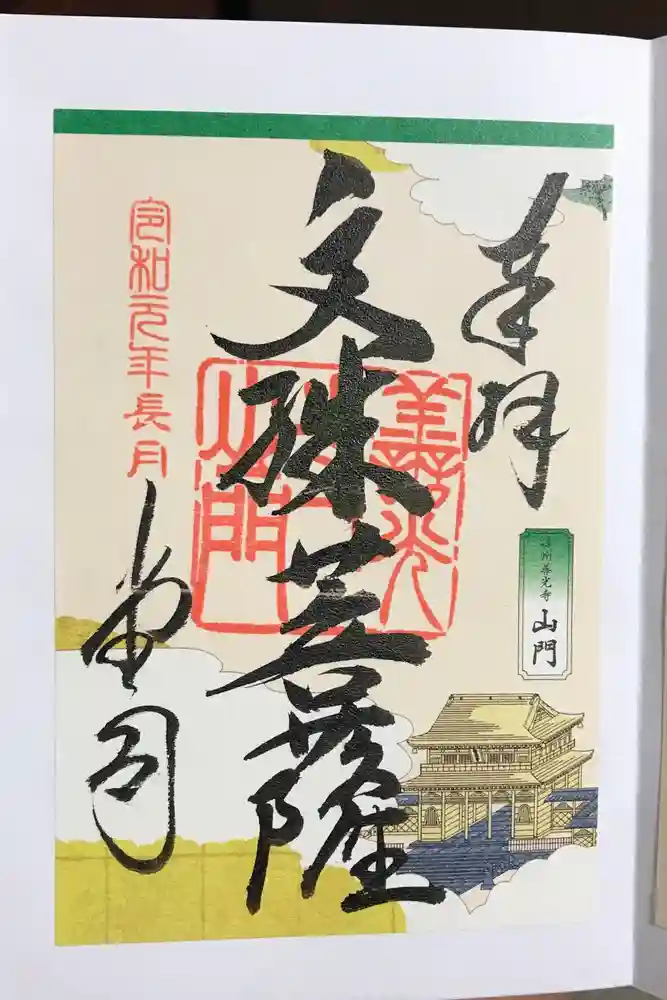 奉拝
信州善光寺
山門
文殊菩薩
善光寺
山門
令和元年長月
堂司